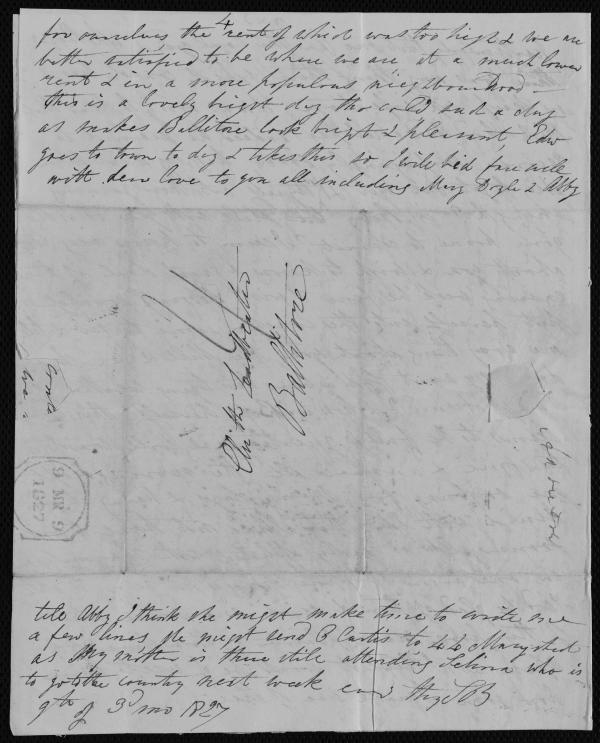 for ourselves the 4 rent of which was too high & we are
better satisfied to be where we are at a much lower
rent & in a more populous neighbourhood –
this is a lovely bright day tho cold, such a day
as makes Ballitore look bright & pleasant, Edw
goes to town to day & takes this so I will bid farewell
with dear love to you all including Mary Doyle & Abby
Eliz'th Leadbeater
Ballitore
9 MR 9
1827
tell Abby I think she might make time to write me
a few lines she might send B Curtis to 44 Mary street
as My mother is there still attending Selina who is
to go to the country next week
9th of 3d mo 1827